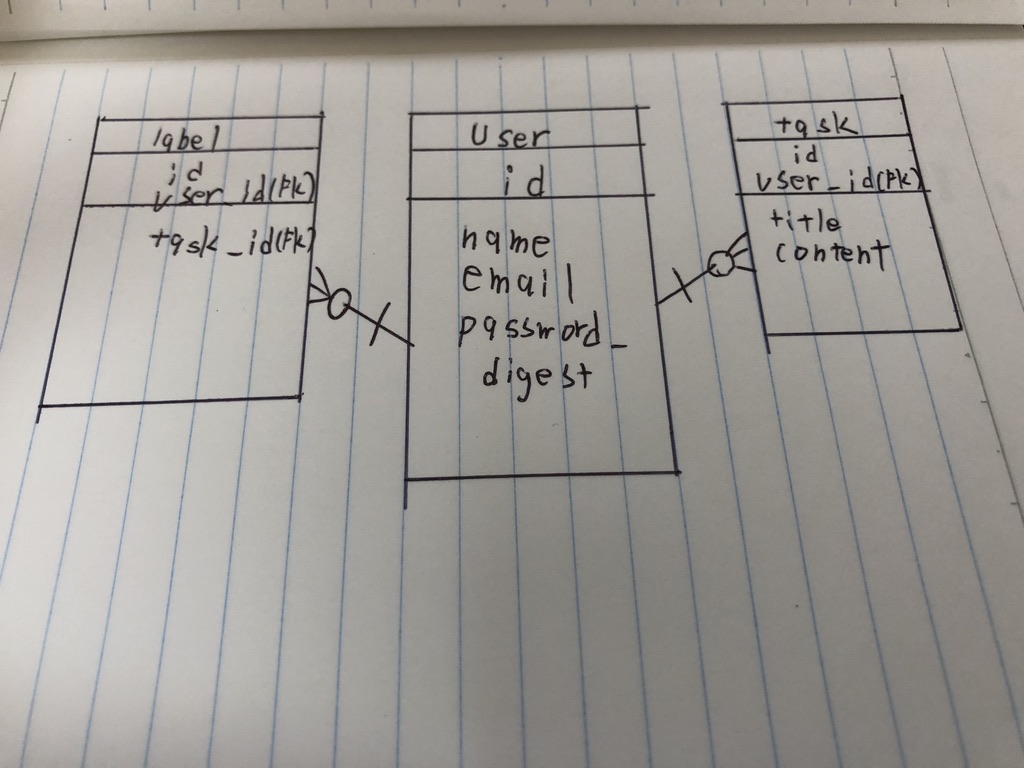 label
id
user_id(Fk)
task_id(Fk)
User
id
name
email
password_
digest
task
id
user_id(Fk)
title
content